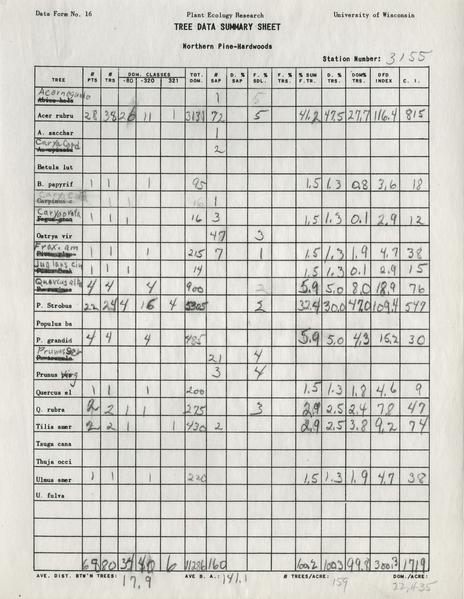 Data Form No. 16 Plant Ecology Research University of Wisconsin
TREE DATA SUMMARY SHEET
Northern Pine-Hardwoods
Station Number: 3155
TREE # PTS # TRS DOM. CLASSES -80 -320 321 TOT. DOM. # SAP D. % SAP # SDL. F. % TRS. F. % TRS. % SUM F.TR. D. % TRS. DOM% TRS. DFD INDEX C. I.
Acer negundo 1
Acer rubru 28 38 26 11 1 3181 72 5 41.2 47.5 27.7 116.4 815
A. sacchar 1
Carya Cord 2
Betula lut
B. papyrif 1 1 1 95 1.5 1.3 0.8 3.6 18
Carpinus c 16 1
Carya ovata 1 1 1 16 3 1.5 1.3 0.1 2.9 12
Ostrya vir 47 3
Frax. am 1 1 1 215 7 1 1.5 1.3 1.9 4.7 38
Juglans cin 1 1 1 14 1.5 1.3 0.1 2.9 15
Quercus alb 4 4 4 900 2 5.9 5.0 8.0 18.9 76
P. Strobus 22 24 4 16 4 5305 2 32.4 30.0 47.0 109.4 547
Populus ba
P. grandid 4 4 4 485 5.9 5.0 4.3 15.2 30
Prunus Ser 21 4
Prunus virg 3 4
Quercus el 1 1 1 200 1.5 1.3 1.8 4.6 9
Q. rubra 2 2 1 1 275 3 2.9 2.5 2.4 7.8 47
Tilia amer 2 2 1 1 430 2 2.9 2.5 3.8 9.2 74
Tsuga cana
Thuja occi
Ulmus amer 1 1 1 220 1.5 1.3 1.9 4.7 38
U. fulva
68 80 34 40 6 11286 160 100.2 100.3 99.8 300.3 1719
AVE. DIST. BTW'N TREES: 17.9 AVE B. A.: 141.1 # TREES/ACRE: 159 DOM./ACRE: 22,435